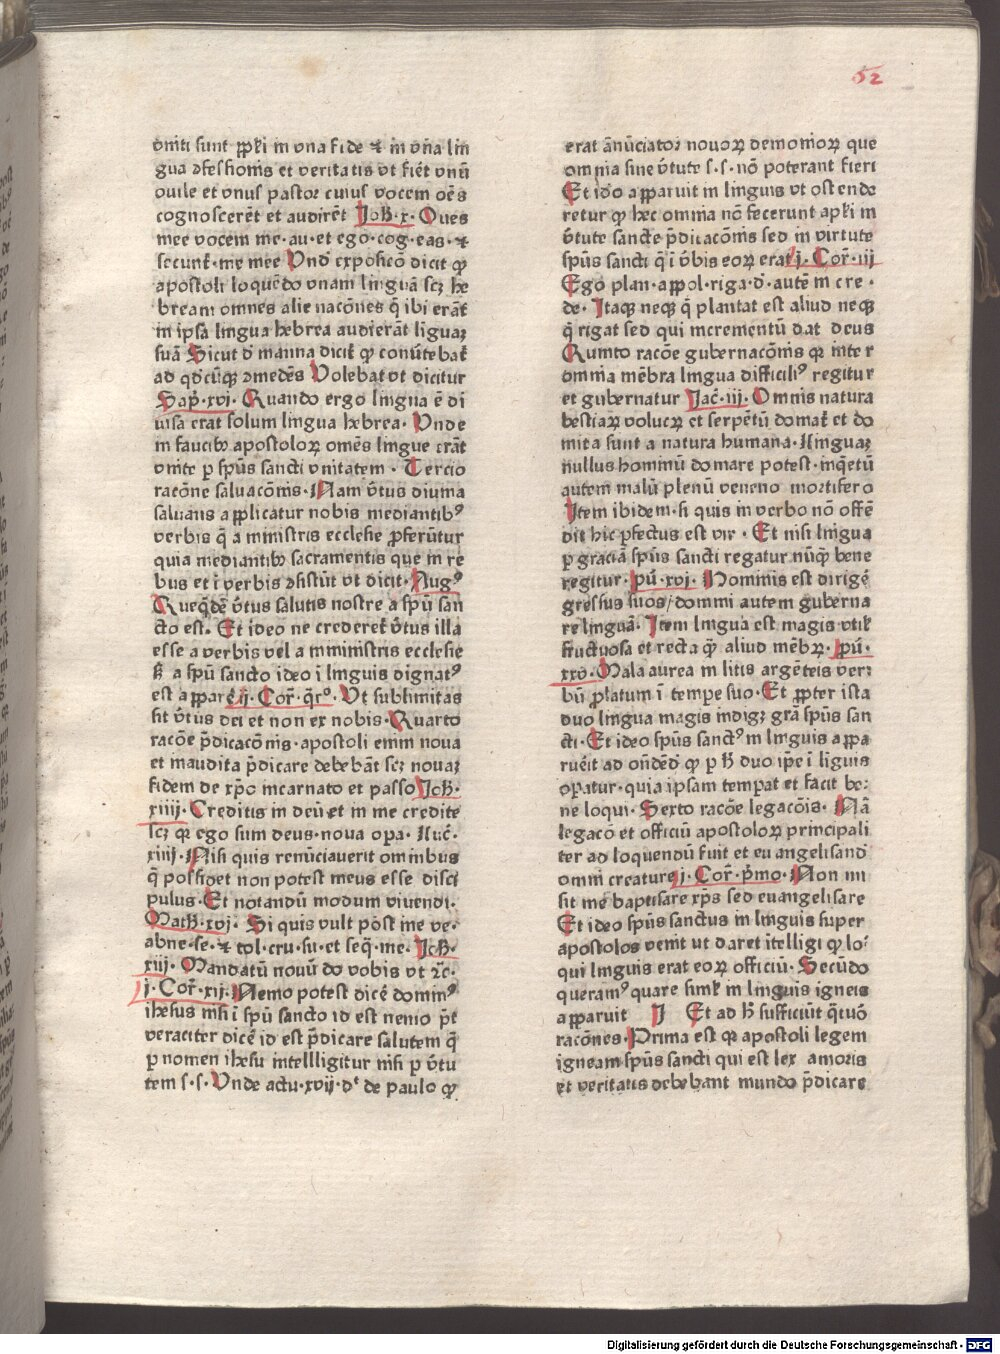 52
vniti sunt ppłi in vna fide ⁊ in vna lin
gua ꝯfessionis et veritatis vt fiēt vnū
ouile et vnus pastor cuius vocem oēs
cognoscerēt et audirēt Joħ·x· Oues
mee vocem me·au·et ego·cog·eas·⁊
secunt̄·me mee Vnđ exposicō dicit ꝙ
apostoli loquēdo vnam linguā scꝫ he
bream omnes alie nacōnes q̄ ibi erāt
in ipsa lingua hebrea audierāt liguaꝫ
suā Sicut đ manna dicit̄ ꝙ conūtebat̄
ad qđcūqꝫ ꝯmedēs Volebat vt dicitur
Sap̄·xvi· Quando ergo lingua ē di
uisa erat solum lingua hebrea· Vnde
in faucibꝰ apostoloꝝ omēs lingue erāt
vnite p spūs sancti vnitatem· Tercio
racōne saluacōnis·Nam v̄tus diuina
saluans applicatur nobis mediantibꝰ
verbis q̄ a ministris ecclesie ꝓferūtur
quia mediantibꝰ sacramentis que in re
bus et ī verbis ꝯsistūt vt dicit·Augꝰ
Queqđē v̄tus salutis nostre a spū san
cto est· Et ideo ne crederet̄ v̄tus illa
esse a verbis vel a mministris ecclesie
ꝭ a spū sancto ideo ī linguis dignatꝰ
est apparē ij·Cor̄·q̄rᵒ· Vt sublimitas
sit v̄tus dei et non ex nobis·Quarto
racōe p̄dicacōnis·apostoli enim noua
et inaudita p̄dicare debebāt scꝫ nouaꝫ
fidem de xp̄o incarnato et passo Joħ·
xiiij· Creditis in deū et in me credite
scꝫ ꝙ ego sum deus·noua oꝑa·Luc̄·
xiiij·Nisi quis renūciauerit omnibus
q̄ possidet non potest meus esse disci
pulus·Et notandū modum viuendi·
Math·xvj· Si quis vult post me ve·
abne·se·⁊ tol·cru·su·et seq̄·me·Joħ·
xiij· Mandatū nouū do vobis vt ⁊c̄·
j·Cor̄·xij· Nemo potest dicē dominꝰ
ihesus nisi ī spū sancto id est nemo p̄t
veraciter dicē id est p̄dicare salutem q̄
ꝑ nomen ihesu intellligitur nisi ꝑ v̄tu
tem s·s· Vnde actu·xvij·dᵗ de paulo ꝙ
erat ānūciator nouoꝝ demonioꝝ que
omnia sine v̄tute s·s·nō poterant fieri
Et idō apparuit in linguis vt ostende
retur ꝙ hec omnia nō fecerunt apłi in
v̄tute sancte p̄dicacōnis sed in virtute
spūs sancti q̄ ī v̄bis eoꝝ erat j·Cor̄·iij
Ego plan·appol·riga·đ·autē in cre·
de·Itaqꝫ neqꝫ q̄ plantat est aliud neqꝫ
q̄ rigat sed qui incrementū dat deus
Quinto racōe gubernacōnis ꝙ inter
omnia mēbra lingua difficiliꝰ regitur
et gubernatur Jac̄·iij· Omnis natura
bestiaꝝ voluc̄ꝝ et serpētū domat̄ et do
mita sunt a natura humana·linguaꝫ
nullus hominū domare potest·inqētū
autem malū plenū veneno mortifero
Item ibidem·si quis in verbo nō offē
dit hic pfectus est vir· Et nisi lingua
p graciā spūs sancti regatur nūqꝫ bene
regitur·pū·xvj· Hominis est dirigē
gressus suos/domini autem guberna
re linguā·Item lingua est magis vtił
fructuosa et recta qꝫ aliud mēbꝝ·pū·
xxv· Mala aurea in litis argēteis ver
bū ꝓlatum ī tempe suo· Et ꝓpter ista
duo lingua magis indigꝫ grā spūs san
cti·Et ideo spūs sanctꝰ in linguis appa
ruēit ad onđedō ꝙ ꝑ ħ duo ip̄e ī liguis
oꝑatur·quia ipsam tempat et facit be·
ne loqui· Sexto racōe legacōis· Nā
legacō et officiū apostoloꝝ principali
ter ad loquendū fuit et euangelisand
omni creature j·Cor̄·p̄mo·Non mi
sit me baptisare xp̄s sed euangelisare
Et ideo spūs sanctus in linguis super
apostolos venit ut daret itelligi ꝙ lo⸗
qui linguis erat eoꝝ officiū·Secūdo
queramꝰ quare simł in linguis igneis
apparuit ¶ Et ad ħ sufficiūt q̄tuō
racōnes·Prima est ꝙ apostoli legem
igneam spūs sancti qui est lex amoris
et veritatis debebant mundo p̄dicare
Digitalisierung gefördert durch die Deutsche Forschungsgemeinschaft - DFG